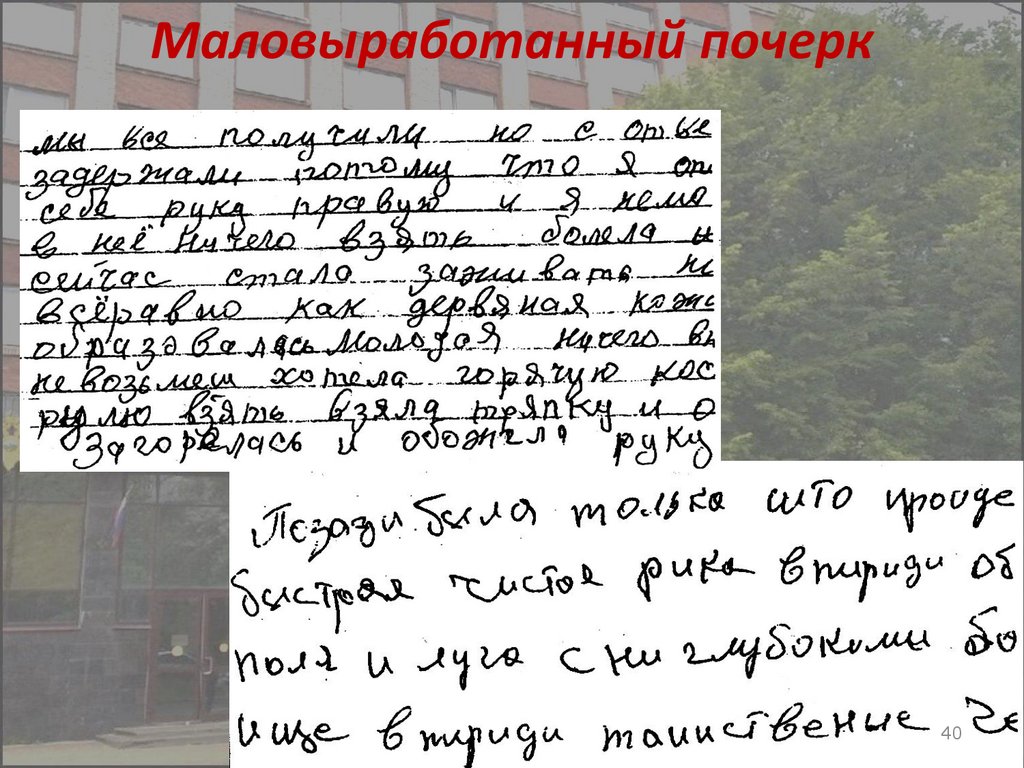 Маловыработанный почерк
мы все получили но с отве
задержали потому что я оп
себе руку правую и я немо
в неё ничего взять болела и
сейчас стало заживать но
всёравно как дервяная кожа
образовалась молодая ничего вн
не возьмеш хотела горячую кос
рюлю взять взяла тряпку и о
загорелась и обожгла руку
Позади была толька што пройде
быстрая чистоя рика впириди об
поля и луга с ни глубокими бо
ище впириди таинственые че
40